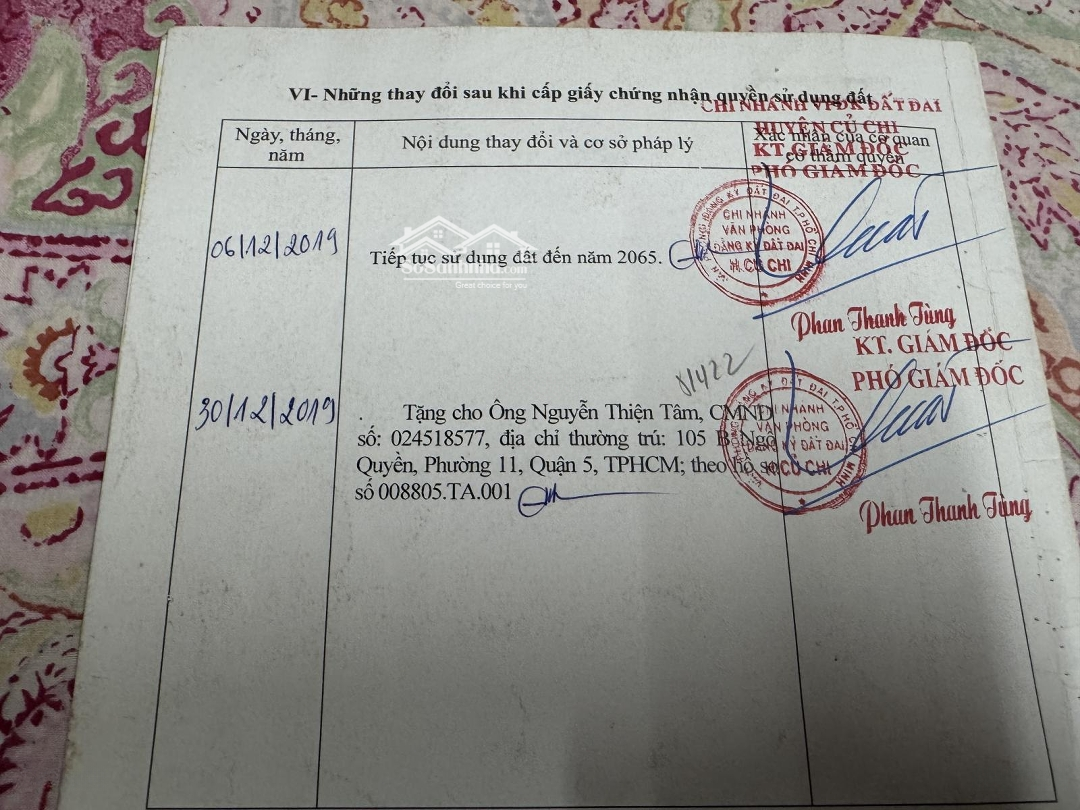 VI- Những thay đổi sau khi cấp giấy chứng nhận quyền sử dụng đất
CHI NHÁNH VPĐK ĐẤT ĐAI
HUYỆN CỦ CHI
KT. GIÁM ĐỐC
PHÓ GIÁM ĐỐC
Ngày, tháng,
năm
Nội dung thay đổi và cơ sở pháp lý
Xác nhận của cơ quan
có thẩm quyền
06/12/2019
Tiếp tục sử dụng đất đến năm 2065.
Great choice for you
VĂN PHÒNG ĐĂNG KÝ ĐẤT ĐAI TP.HỒ CHÍ MINH
CHI NHÁNH
VĂN PHÒNG
ĐĂNG KÝ ĐẤT ĐAI
H.CỦ CHI
Phan Thanh Tùng
KT. GIÁM ĐỐC
PHÓ GIÁM ĐỐC
30/12/2019
Tặng cho Ông Nguyễn Thiện Tâm, CMND
số: 024518577, địa chỉ thường trú: 105 B Ngô
Quyền, Phường 11, Quận 5, TPHCM; theo hồ sơ
số 008805.TA.001
VĂN PHÒNG ĐĂNG KÝ ĐẤT ĐAI TP.HỒ CHÍ MINH
CHI NHÁNH
VĂN PHÒNG
ĐĂNG KÝ ĐẤT ĐAI
H.CỦ CHI
Phan Thanh Tùng